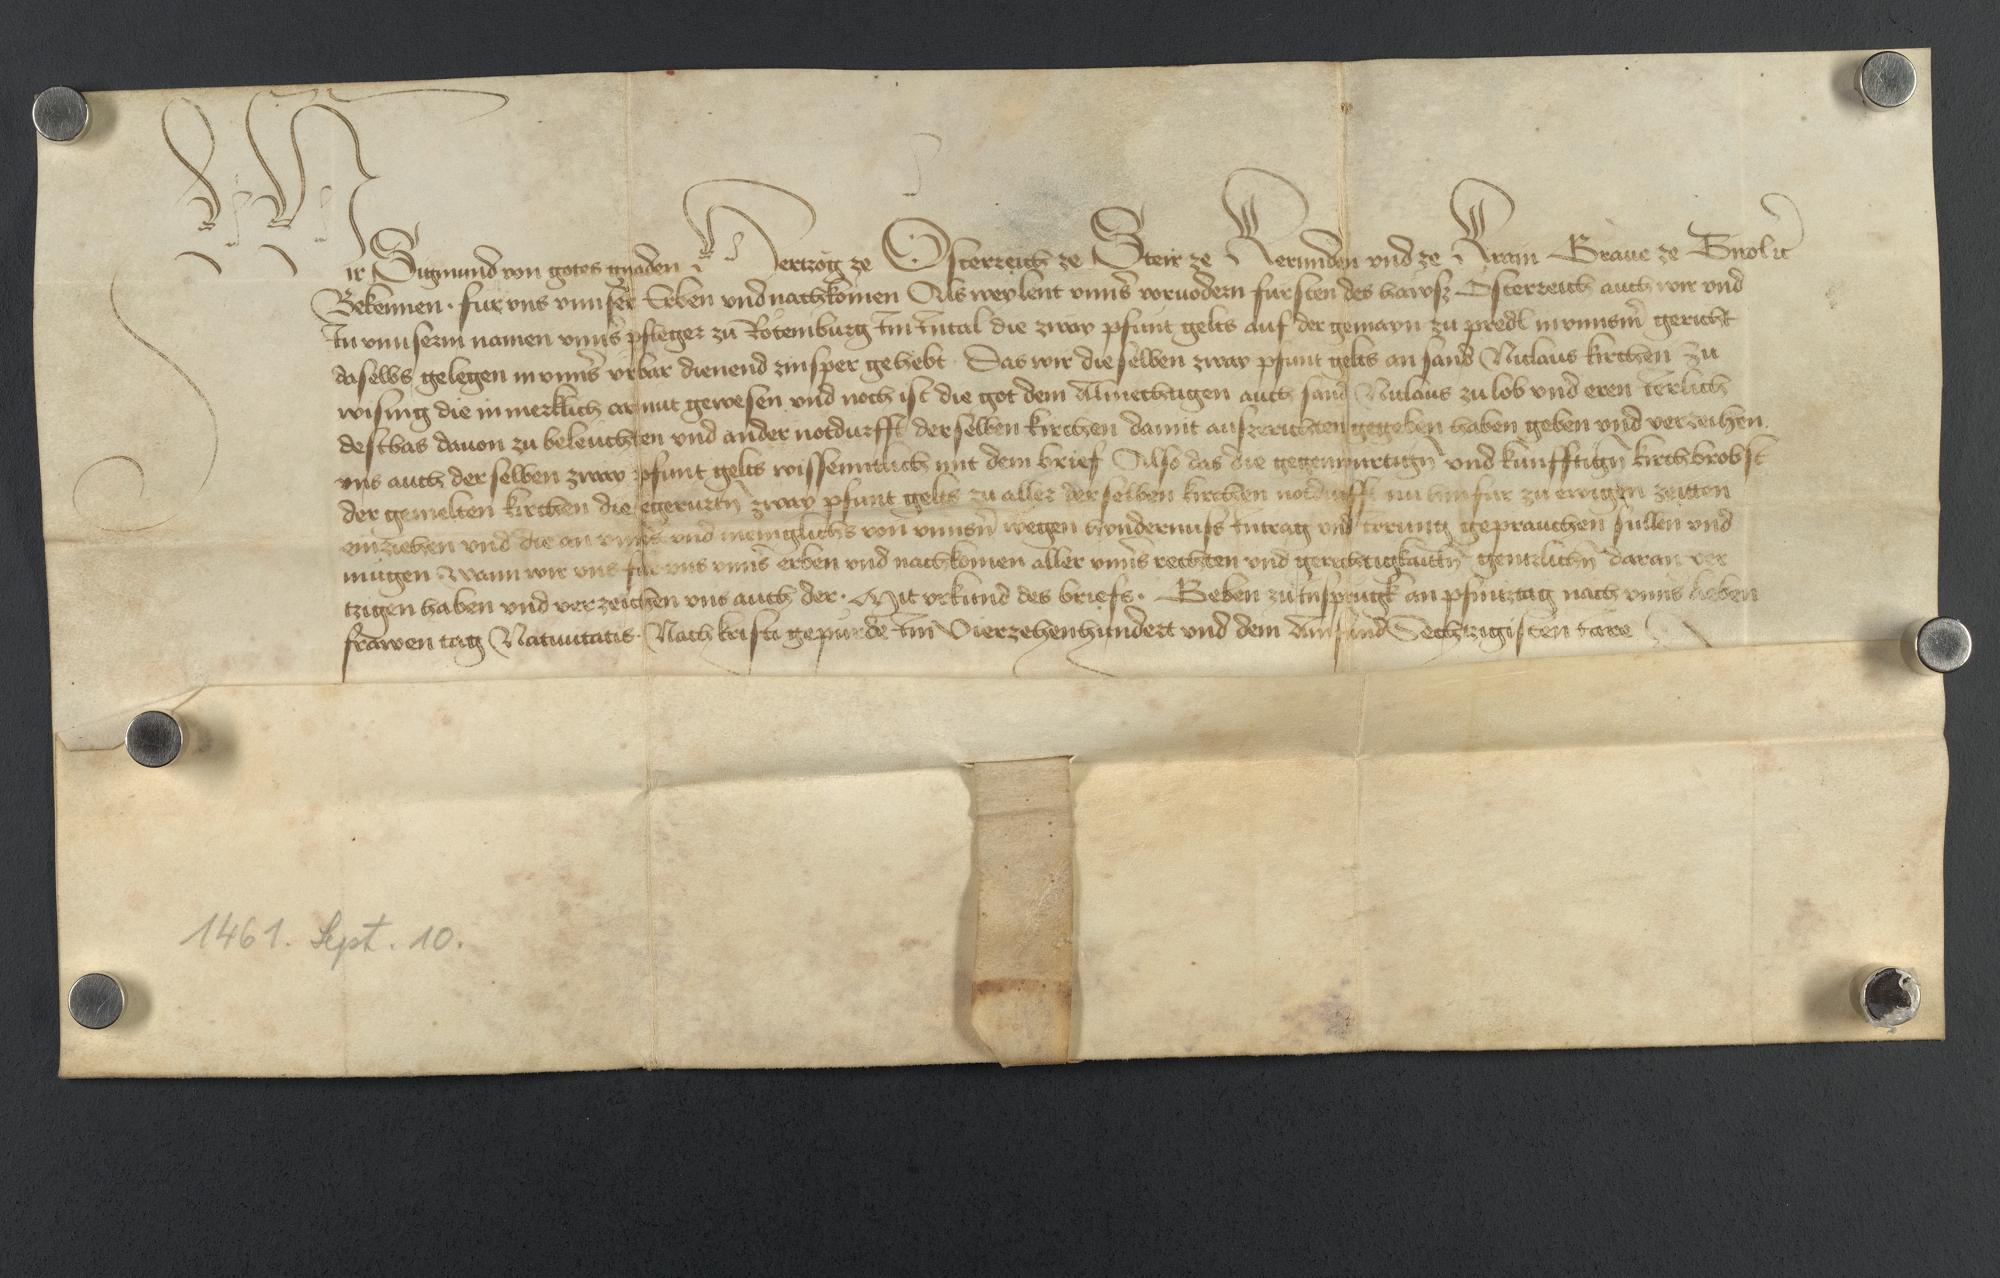 Wir Sigmund von gotes gnaden Hertzog ze Österreich ze Steir ze Kernnden vnd ze Krain Graue ze Tirol etc
Bekennen · für vns vnnser Erben vnd nachkomen Als weylent vnnser voruodern fürsten des hawsz Österreich auch wir vnd
In vnnserm namen vnnser phleger zu Rotemburg Im Intal die zway pfunt gelts auf der gemayn zu predl in vnnserm gericht
daselbs gelegen in vnnser vrbar dienend zinsper gehebt · Das wir dieselben zway pfunt gelts an sand Niclaus kirchen zu
wising die in merklich armut gewesen vnd noch ist die got dem Almechtigen auch sand Niclaus zu lob vnd eren Ierlich
destbas dauon zu beleuchten vnd ander notdurfft derselben kirchen damit auszerichten gegeben haben geben vnd verzeihen
vns auch derselben zway pfunt gelts wissenntlich mit dem brief Also das die gegenwurtign vnd künfftign kirchbrobst
der gemelten kirchen die egerurtn zway pfunt gelts zu aller derselben kirchen notdurfft nu hinfur zu ewigen zeitten
einziehen vnd die an vnnser vnd meniglichs von vnnsern wegen hyndernuss Intrag vnd Irrung geprauchen sullen vnd
mugen Wann wir vns für vns vnnser erben vnd nachkomen aller vnnser rechten vnd gerechtigkaittn genntzlichn daran ver
tzigen haben vnd verzeichen vns auch der · Mit vrkund des briefs · Geben zu Insprugk an pfintztag nach vnnser lieben
frawen tag Natiuitatis · Nach kristi gepurde Im Vierzehenhundert vnd dem Ainsund Sechtzigisten Iare
1461. Sept. 10.